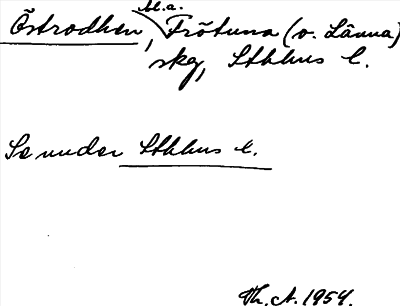 bl.a.
Östrodhen, Frötuna (o. Länna)
skg, Sthlms l.
Se under Sthlms l.
Th. A. 1954.